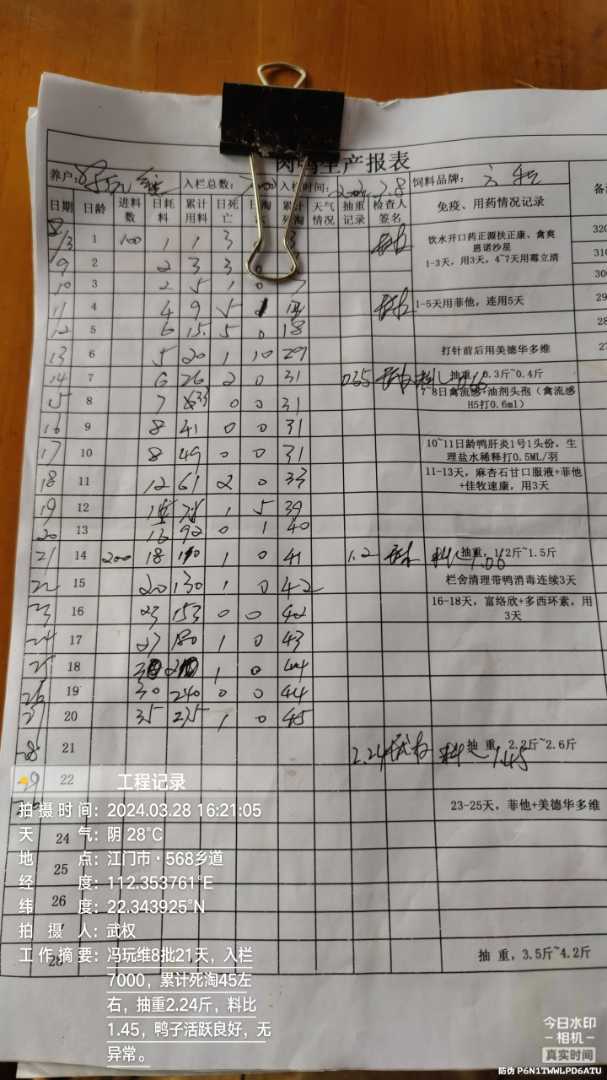 肉鸭生产报表
养户: 入栏总数: 入栏时间: 饲料品牌:
日期 日龄 进料数 日耗料 累计用料 日死亡 累计死淘 天气情况 抽重记录 检查人签名 免疫、用药情况记录
8/3 1 100 1 1 3 饮水开口药正源扶正康、禽爽
恩诺沙星
1-3天，用3天，4~7天用霉立清
320
310
300
9 2 2 3 3 0
10 3 2 5 1 0 7
11 4 4 9 5 1-5天用菲他，连用5天
29
12 5 6 15 5 0 18
28
13 6 5 20 1 10 29 打针前后用美德华多维
27
14 7 6 26 2 0 31 抽重：0.3斤~0.4斤
15 8 7 0 0 31 7-8日禽流感+油剂头孢（禽流感
H5打0.6ml）
16 9 8 41 0 0 31
17 10 8 49 0 0 31 10~11日龄鸭肝炎1号1头份，生
理盐水稀释打0.5ML/羽
18 11 12 61 2 0 33 11-13天，麻杏石甘口服液+菲他
+佳牧速康，用3天
19 12 1 5 39
20 13 16 92 0 1 40
21 14 200 18 110 1 0 41 1.2 抽重，1/2斤~1.5斤
22 15 20 130 1 0 42 栏舍清理带鸭消毒连续3天
23 16 23 153 0 0 42 16-18天，富络欣+多西环素，用
3天
24 17 27 180 1 0 43
25 18 30 210 1 0 44
26 19 30 240 0 0 44
27 20 35 275 1 0 45
28 21 2.24 抽重，2.2斤~2.6斤 1.45
29 22
23-25天，菲他+美德华多维
24
25
26
28 抽重，3.5斤~4.2斤
工程记录
拍摄时间：2024.03.28 16:21:05
天气：阴 28°C
地点：江门市·568乡道
经度：112.353761°E
纬度：22.343925°N
拍摄人：武权
工作摘要：冯玩维8批21天，入栏
7000，累计死淘45左
右，抽重2.24斤，料比
1.45，鸭子活跃良好，无
异常。
今日水印
-相机-
真实时间
防伪 P6N1TWWLPD6ATU